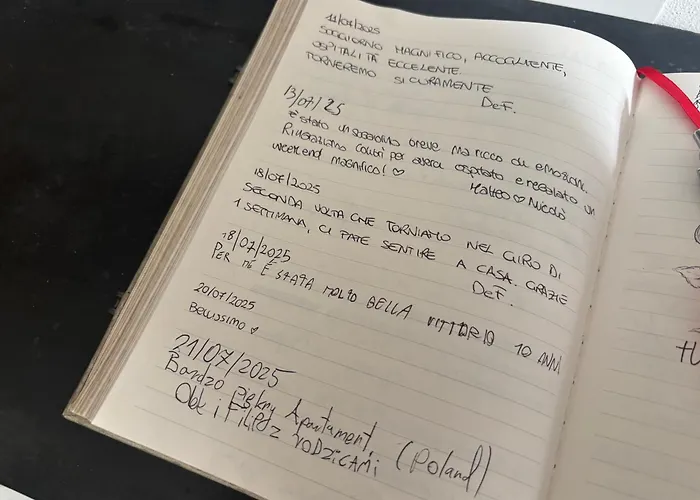 11/07/2025
SOGGIORNO MAGNIFICO, ACCOGLIENTE,
OSPITALITÀ ECCELENTE.
TORNEREMO SICURAMENTE
D e F.
13/07/25
È stato un soggiorno breve ma ricco di emozioni.
Ringraziamo per averci ospitato e regalato un
weekend magnifico! ♡
Matteo ♡ Nicolò
18/07/2025
SECONDA VOLTA CHE TORNIAMO NEL GIRO DI
1 SETTIMANA, CI FATE SENTIRE A CASA. GRAZIE
D e F.
18/07/2025
PER ME È STATA MOLTO BELLA VITTORIO 10 ANNI
20/07/2025
Bellissimo ♡
21/07/2025
Bardzo Piękny Apartament,
(Poland)
i Filip z RODZICAMI